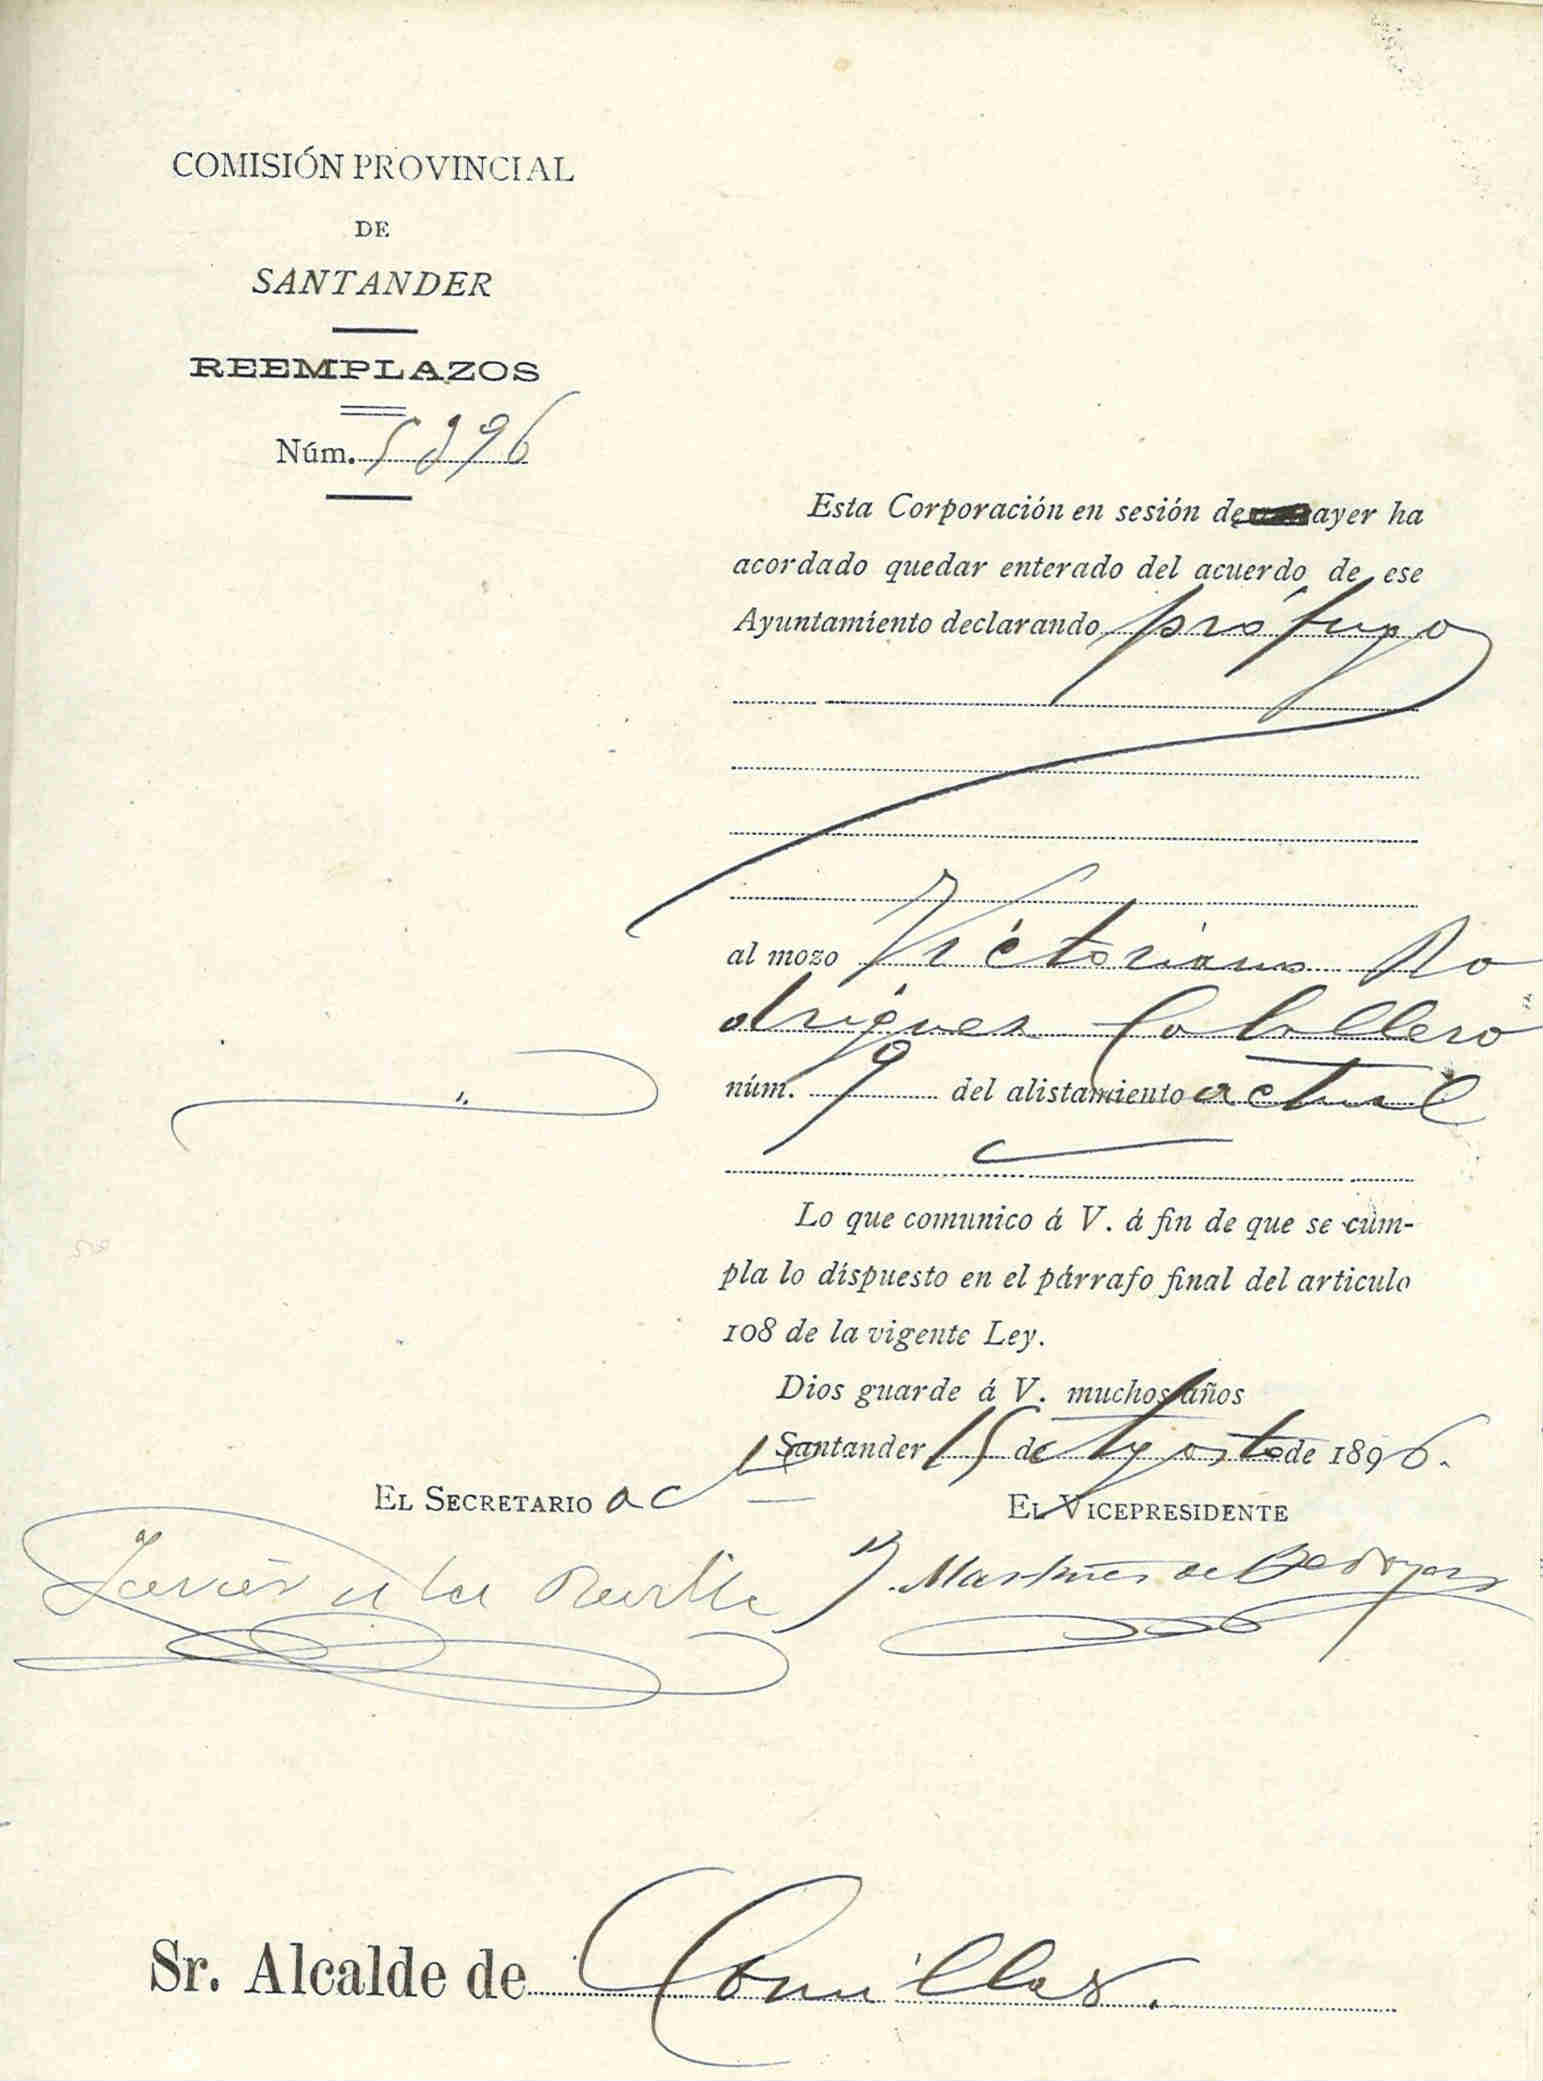 COMISIÓN PROVINCIAL
DE
SANTANDER
REEMPLAZOS
Núm. 5396
Esta Corporación en sesión de ayer ha
acordado quedar enterado del acuerdo de ese
Ayuntamiento declarando prófugo
al mozo Victoriano Ro
driguez Caballero
núm. 9 del alistamiento actual
Lo que comunico á V. á fin de que se cum-
pla lo dispuesto en el párrafo final del articulo
108 de la vigente Ley.
Dios guarde á V. muchos años
Santander 15 de Agosto de 1896.
EL SECRETARIO acl
EL VICEPRESIDENTE
Javier de la Revilla
J. Martinez de Bedoya
Sr. Alcalde de Comillas.